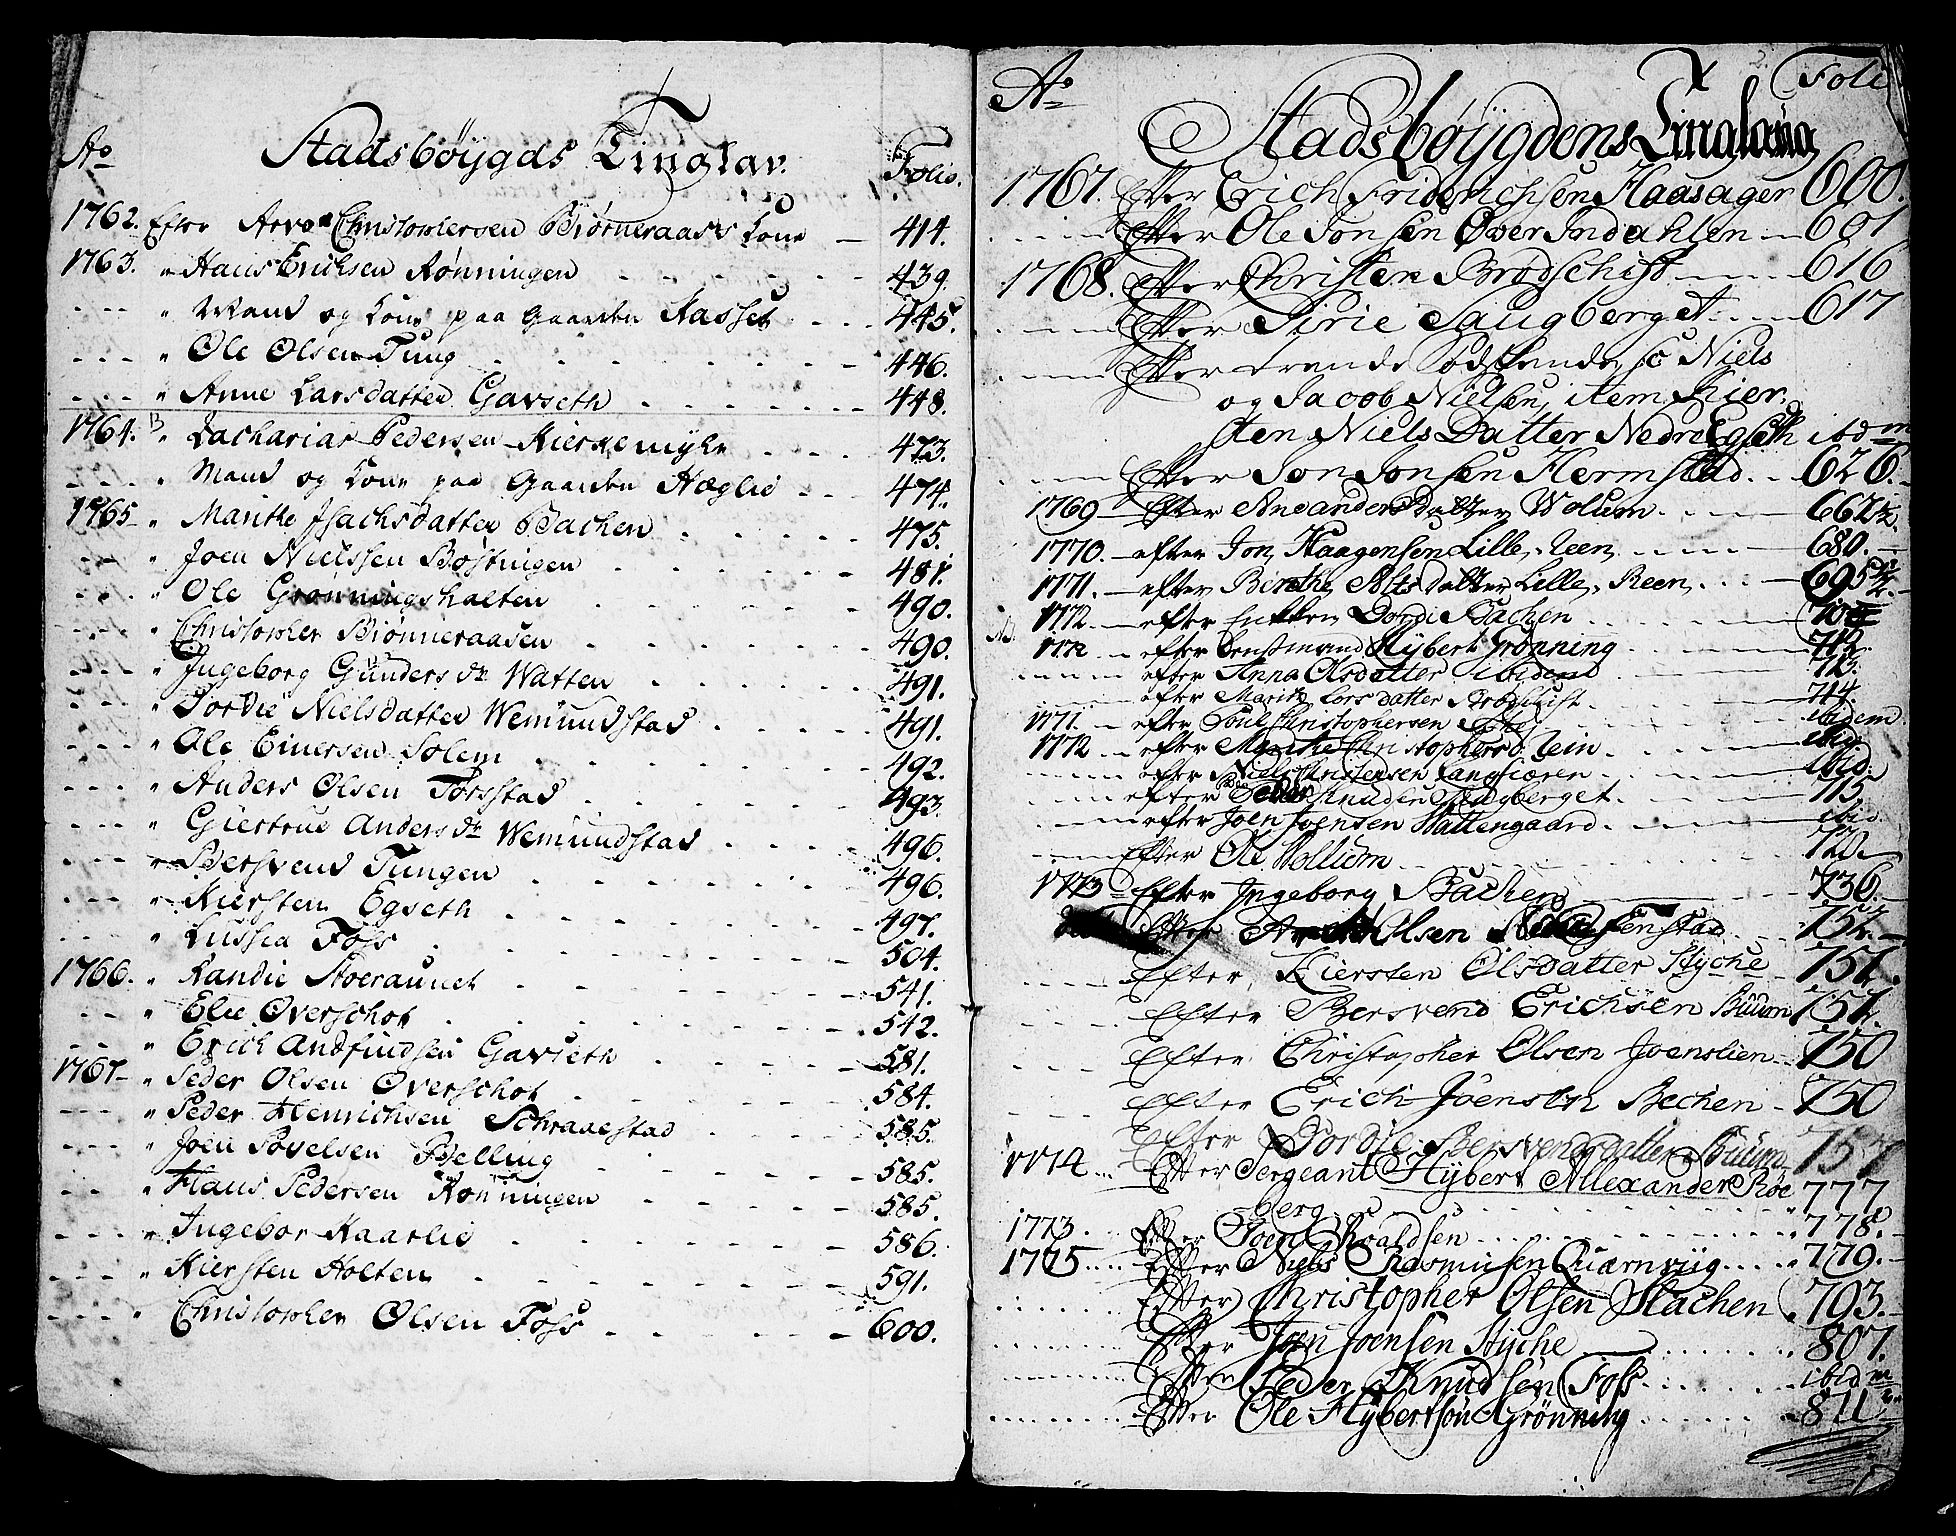 Ao Stadsböijgds Tinglav. Folio.
1762. Efter Arve Christophersen Biørneraass Kone — 414.
1763. " Hans Erichsen Rønningen 439.
" Mand og Kone paa Gaarden Aasset 445.
" Ole Olsen Tung 446.
" Anne Larsdatter Garseth 448.
1764. " Zacharias Pedersen Kierkemyhr 473.
" Mand og Kone paa Gaarden Hæglie 474.
1765 " Marithe Isachsdatter Bachen 475.
" Joen Nielssen Bostningen 481.
" Ole Grønningsholten 490.
" Christopher Biønneraasen 490.
" Ingeborg Gunders dr Watten 491.
" Dordie Nielsdatter Wemundstad 491.
" Ole Einersen Solem 492.
" Anders Olsen Torsstad 493.
" Giertrue Anders dr Wemundstad 496.
" Bersvend Tungen 496.
" Kiersten Egseth 497.
" Lussia Foss 504.
1766. " Randie Stoeraunet 541.
" Elie Overschot 542.
" Erich Andfindsen Garseth 581.
1767 " Peder Olsen Overschot 584.
" Peder Henrichsen Schraaestad 585.
" Joen Povelsen Belling 585.
" Hans Pedersen Rønningen 585.
" Ingebor Kaarlie 586.
" Kiersten Holten 591.
" Christopher Olsen Foss 600.
Ao Folio
Stadsböijgdens Tinglaug
1767. Efter Erich Friderichsen Haasager 600.
Efter Ole Jonsen Øver Indahlen 601
1768. Efter Christen Brødschift 616
Efter Sirie Saugberget 617
Efter trende Sødskende, so Niels
og Jacob Nielsen, item Kier-
sten Niels Datter Nedre Egseth ibdm
Efter Jon Jonsen Hermstad 626.
1769 Efter Ane anders Datter Wolum 662½.
1770. efter Jon Haagensen Lille Reen 680.
1771. efter Birthe Alts datter Lille Reen 695½.
1772. efter Enken Dordi Bachen
1772 efter Hybert Grønning 712.
efter Anna Olsdatter ibidem 713.
efter Marith Lars datter Brødschift 714.
1771. efter Poul Christophersen ibidem
1772 efter Marithe Christophersd. Rein ibid.
efter Niels Christensen Langsiæren ibid.
efter Peder Knudsen Saugberget 715
efter Joen Joensen Wattengaard ibid.
Efter Ole Wollum 720
1773 Efter Ingeborg Bachen 736.
Efter Olsen
Efter Kiersten Olsdatter Hyche 757.
Efter Bersvend Erichsen 757.
Efter Christopher Olsen Joenslien 750
Efter Erich Joensen Bechen 750
Efter Dordie Bersvendsdatter 757
1774 Efter Sergeant Hybert Allexander Röe
berg 777
1773. Efter Joen Roaldsen 778.
1775 Efter Niels Rasmusen Quærnviig 779.
Efter Christopher Olsen Stachen 793.
Efter Joen Joensen Hyche 807.
Efter Peder Knudsen Foss ibidm
Efter Ole Hybertsøn Grønning 811